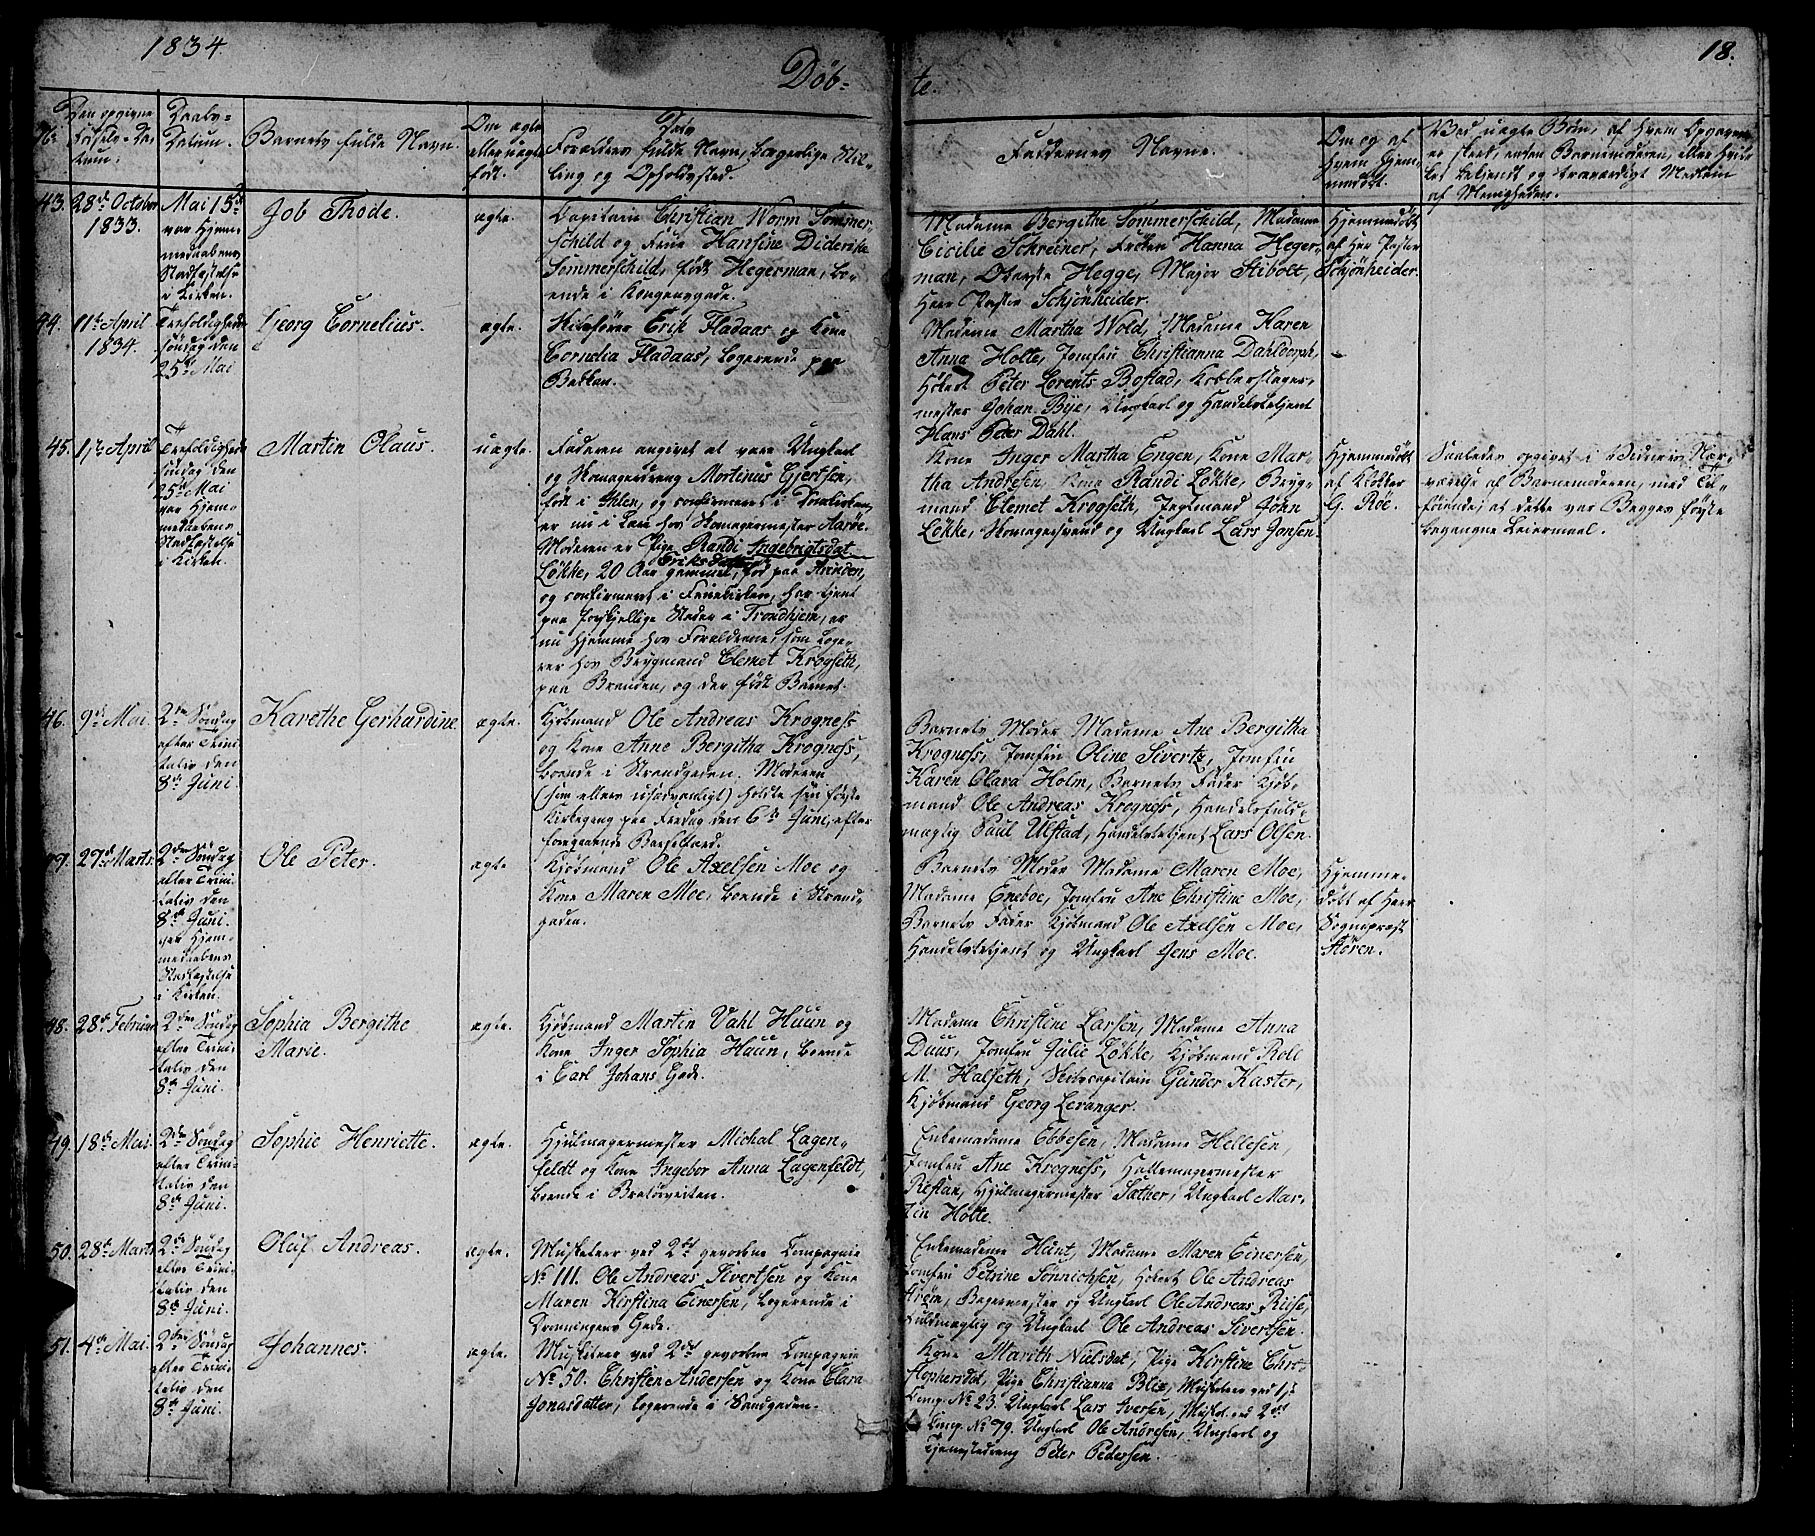 1834.
Döb-
te.
18.
No.
Den opgivne
Fødsels-Da-
tum.
Daabs-
Datum.
Barnets fulde Navn.
Om ægte
eller uægte
født.
Dets
Forældres fulde Navne, borgerlige Stil-
ling og Opholdssted.
Faddernes Navne.
Om og af
hvem hjem-
medöbt.
Ved uægte Børn, af hvem Opgaven
er skeet, enten Barnemoderen, eller hvil-
ket bekjendt og troværdigt Medlem
af Menigheden.
43.
28de October
1833.
Mai 15de
var Hjem-
medaabens
Stadfæstelse
i Kirken.
Job Thode.
ægte.
Capitain Christian Worm Sommer-
schild og Frue Hansine Diderikke
Sommerschild, født Hegerman, bo-
ende i Kongensgade.
Madame Bergithe Sommerschild, Madame
Cicilie Schreiner, Frøken Hanna Heger-
man, Oberste Hegge, Major Stibolt,
Herr Pastor Schjönheider.
Hjemmedöbt
af Herr Pastor
Schjönheider.
44.
11te April
1834.
Trefoldigheds
Søndag den
25de Mai
Georg Cornelius.
ægte.
Erik Fladaas og Kone
Cornelia Fladaas, logerende paa
Bakken.
Madame Martha Wold, Madame Karen
Anna Holte, Jomfru Christianna Dahldorph,
Høker Peter Lorents Bostad, Kobberslager-
mester Johan Bye, Ungkarl og Handelsbetjent
Hans Peter Dahl.
45.
April
Trefoldigheds
Søndag den
25de Mai
var Hjem-
medaabens
Stadfæstelse
i Kirken.
Martin Olaus.
uægte.
Faderen angivet at være Ungkarl
og Skomagerdreng Mortinus Gjertsen,
født i Ihlen, og confirmeret i Domkirken,
er nu i Lære hos Skomagermester Aarøe.
Moderen er Pige Randi Ingebrigtsdat
Eriksdatter
Løkke, 20 Aar gammel, fød paa Strinden,
og confirmeret i Fruekirken, har tjent
paa forskjellige Steder i Trondhjem, er
nu hjemme hos Forældrene, som loge-
rer hos Brygmand Clemet Krogseth,
paa Brænden, og der født Barnet.
Kone Inger Martha Engen, Kone Mar-
tha Andresen, Kone Randi Løkke, Bryg-
mand Clemet Krogseth, Jegtmand John
Løkke, Skomagersvend og Ungkarl Lars Jonsen.
Hjemmedöbt
af Klokker
G. Röe.
Saaledes opgivet i Vidners Nær-
værelse af Barnemoderen, med Til-
föiende, at dette var Begges første
begangne Leiermaal.
46.
9de Mai.
2den Søndag
efter Trini-
tatis den
8de Juni.
Karethe Gerhardine.
ægte.
Kjøbmand Ole Andreas Krogness
og Kone Anne Bergitha Krogness,
boende i Strandgaden. Moderen
(som ellers usædvanligt) holdte sin første
Kirkegang paa Fredag den 6te Juni, efter
foregaaende Barselfærd.
Barnets Moder Madame Ane Bergitha
Krogness, Jomfru Oline Sivertz, Jomfru
Karen Clara Holm, Barnets Fader Kjøb-
mand Ole Andreas Krogness, Handelsfuld-
mægtig Paul Ulstad, Handelsbetjent Lars Olsen.
47.
27de Marts.
2den Søndag
efter Trini-
tatis den
8de Juni.
var Hjem-
medaabens
Stadfæstelse
i Kirken.
Ole Peter.
ægte
Kjøbmand Ole Axelsen Moe og
Kone Maren Moe, boende i Strand-
gaden.
Barnets Moder Madame Maren Moe,
Madame Eneboe, Jomfru Ane Christine Moe,
Barnets Fader Kjøbmand Ole Axelsen Moe,
Handelsbetjent og Ungkarl Jens Moe.
Hjemme-
döbt af Herr
Sogneprest
Stören.
48.
28de Februar
2den Søndag
efter Trini-
tatis den
8de Juni.
Sophia Bergithe
Marie.
ægte.
Kjøbmand Martin Vahl Huun og
Kone Inger Sophia Huun, boende
i Carl Johans Gade.
Madame Christine Larsen, Madame Anna
Duus, Jomfru Julie Løkke, Kjøbmand Role
M. Halseth, Skibscapitain Gunder Kaster,
Kjøbmand Georg Leranger.
49.
18de Mai.
2den Søndag
efter Trini-
tatis den
8de Juni.
Sophie Henriette.
ægte.
Hjulmagermester Michal Lagen-
feldt og Kone Ingebor Anna Lagenfeldt,
boende i Bratörveiten.
Enkemadame Ebbesen, Madame Hellesen,
Jomfru Ane Krogness, Hattemagermester
Ristan, Hjulmagermester Sæther, Ungkarl Mar-
tin Holte.
50.
28de Marts
2den Søndag
efter Trini-
tatis den
8de Juni.
Oluf Andreas.
ægte.
Musketeer ved 2det gevorbne Compagnie
No 111. Ole Andreas Sivertsen og Kone
Maren Kirstina Einersen, logerende i
Dronningens Gade.
Enkemadame Hunt, Madame Maren Einersen,
Jomfru Petrine Sønnichsen, Høker Ole Andreas
Strøm, Bagermester og Ungkarl Ole Andreas Riise,
Fuldmægtig og Ungkarl Ole Andreas Sivertsen.
51.
4de Mai.
2den Søndag
efter Trini-
tatis den
8de Juni.
Johannes.
ægte.
Musketeer ved 2det gevorbne Compagnie
No 50. Christen Andersen og Kone Clara
Jonasdatter, logerende i Sandgaden.
Kone Marith Nielsdat, Pige Kirstine Chri-
stophersdat, Pige Christianna Blix, Musketeer ved 1ste
Comp. No 23. Ungkarl Lars Iversen, Musket. ved 2det
Comp. No 79. Ungkarl Ole Andresen, Ungkarl og
Tjenestedreng Peter Pedersen.